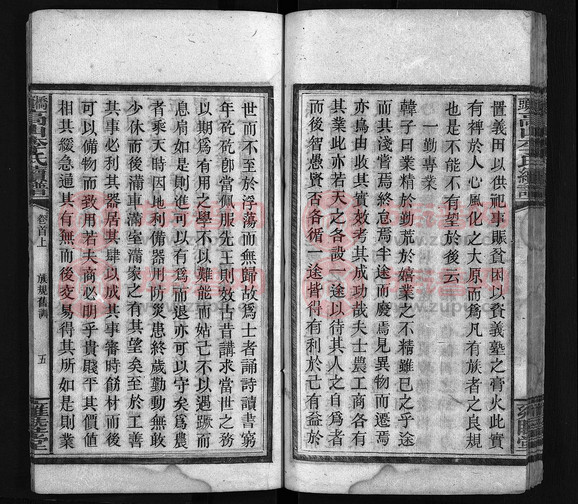 置義田以供祀事賑貧困以資義塾之膏火此實
有裨於人心風化之大原而爲凡有族者之良規
也是不能不有望於後云
一勤專業
韓子曰業精於勤荒於嬉業之不精雖已之乎途
而其淺嘗焉終怠焉半途而廢焉見異物而遷焉
亦爲由收其實效考其成功哉夫士農工商各有
其業此亦若天之各設一途以待其人之自爲者
而後智愚賢否各循一途皆得有利於己有益於
世而不至於浮蕩而無歸故爲士者誦詩讀書窮
年矻矻卽當佩服先王則效古昔講求當世之務
以期爲有用之學不以難能而姑已不以遇蹶而
息肩如是則進可以有爲而退亦可以守矣爲農
者乘天時因地利備器用防災患終歲勤動無敢
少休而後滿車滿室滿家之有其望矣至於工善
其事必利其器居其肆以成其事審時飭材而後
可以備物而致用若夫商必明乎貴賤平其價值
相其緩急通其有無而後交易得其所如是則業
橋頭高山李氏續譜
卷首上
族規舊
五